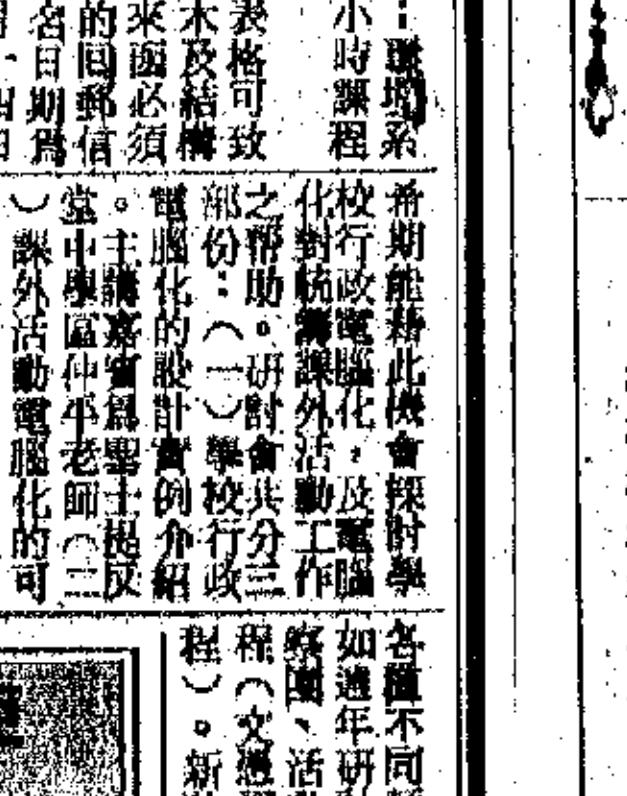 ：聯增系
小時課程
表格可致
木及結構
來函必須
的回郵信
名日期爲
希期能藉此機會探討學
校行政電腦化，及電腦
化對統籌課外活動工作
之幫助。研討會共分三
部份：（一）學校行政
電腦化的設計實例介紹
。主講嘉賓爲聖士提反
堂中學區仲平老師（二
）課外活動電腦化的可
各種不同
如過年研
察團、活
程（文憑
程）。新